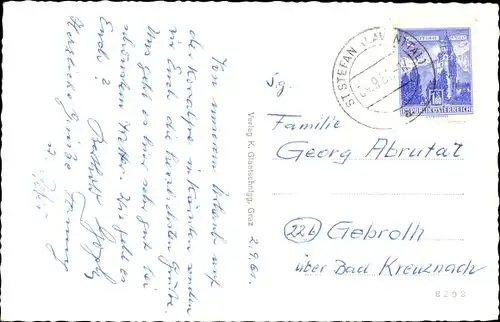 Von unserem Urlaub auf
der Koralpe in Kärnten senden
wir Euch die herzlichsten Grüße.
Uns geht es hier sehr gut bei
schönstem Wetter. Wie geht es
Euch?
Herzliche Grüße
Verlag K. Glantschnigg, Graz
2.9.61.
ST. STEFAN (LAVANTTAL)
REPUBLIK ÖSTERREICH
Familie
Georg Abrutat
(22b) Gebroth
über Bad Kreuznach
8298